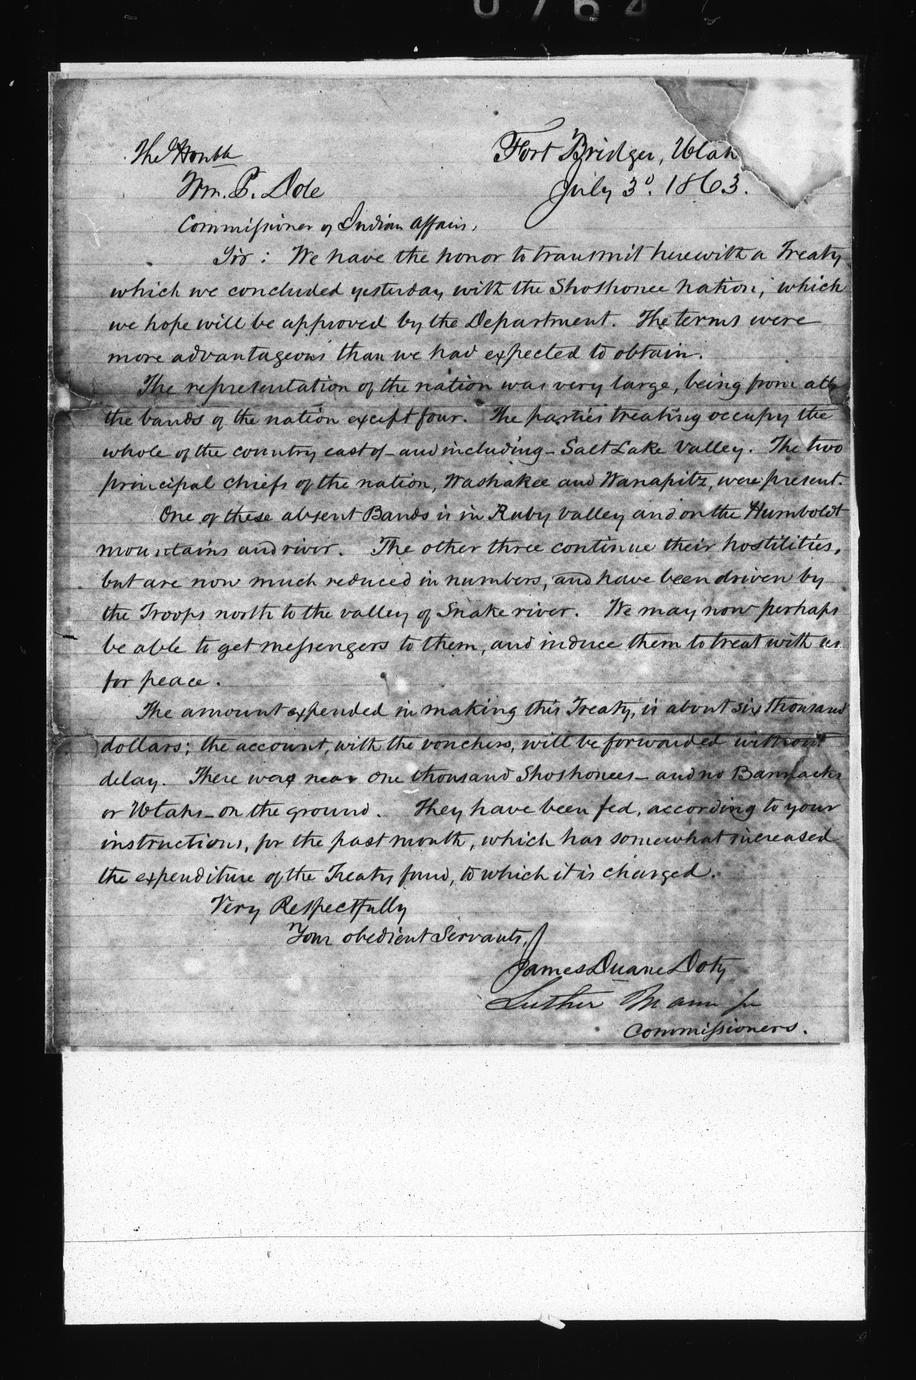 0764
Fort Bridger, Utah
The Honble
July 3d. 1863.
Wm. P. Dole
Commissioner of Indian Affairs,
Sir: We have the honor to transmit herewith a Treaty
which we concluded yesterday with the Shoshonee nation, which
we hope will be approved by the Department. The terms were
more advantageous than we had expected to obtain.
The representation of the nation was very large, being from all
the bands of the nation except four. The parties treating occupy the
whole of the country east of - and including - Salt Lake Valley. The two
principal chiefs of the nation, Washakee and Wanapitz, were present.
One of these absent Bands is in Ruby valley and on the Humboldt
mountains and river. The other three continue their hostilities,
but are now much reduced in numbers, and have been driven by
the Troops north to the valley of Snake river. We may now perhaps
be able to get messengers to them, and induce them to treat with us
for peace.
The amount expended in making this Treaty, is about six thousand
dollars; the account, with the vouchers, will be forwarded without
delay. There were near one thousand Shoshonees - and no Bannacks
or Utahs - on the ground. They have been fed, according to your
instructions, for the past month, which has somewhat increased
the expenditure of the Treaty fund, to which it is charged.
Very Respectfully
Your obedient Servants,
James Duane Doty
Luther Mann Jr
Commissioners.